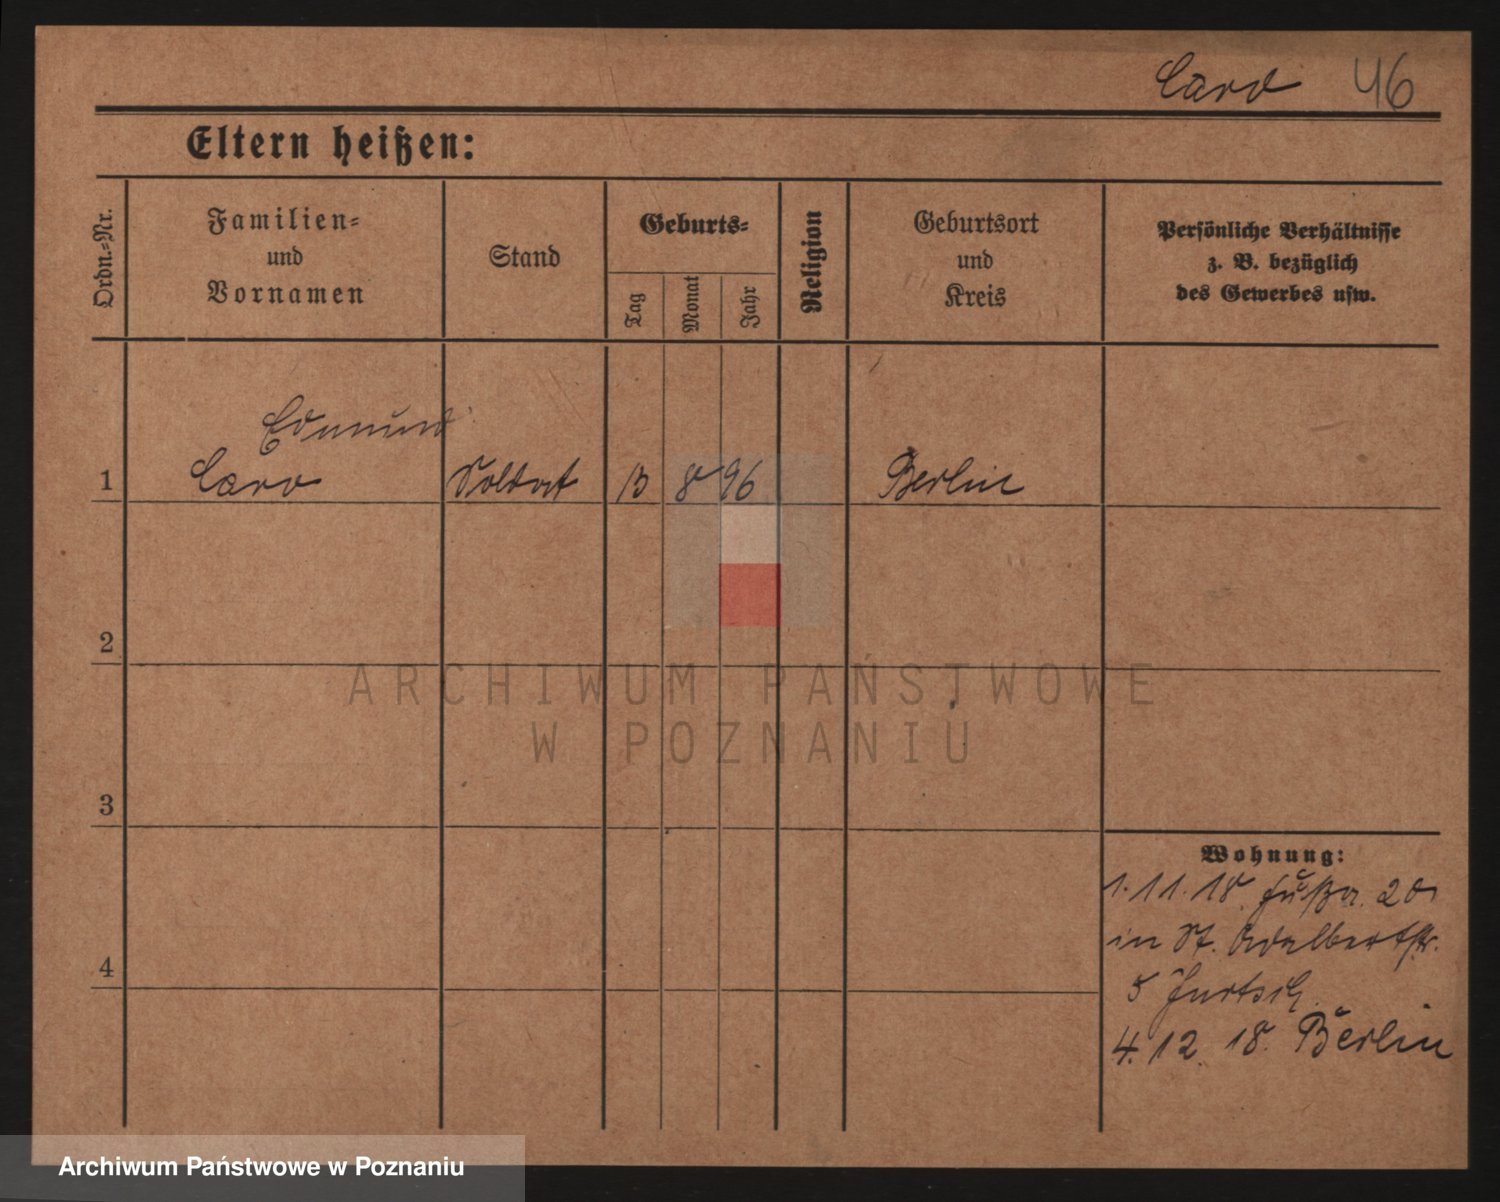 Caro 46
Eltern heißen:
Ordn.-Nr.
Familien-
und
Vornamen
Stand
Geburts-
Tag
Monat
Jahr
Religion
Geburtsort
und
Kreis
Persönliche Verhältnisse
z. B. bezüglich
des Gewerbes usw.
Edmund
1 Caro Soldat 13 8 96 Berlin
2
3
4
Wohnung:
1. 11. 18. Fußa. 20
in St. Adalbertstr.
5
4. 12. 18. Berlin
ARCHIWUM PAŃSTWOWE
W POZNANIU
Archiwum Państwowe w Poznaniu